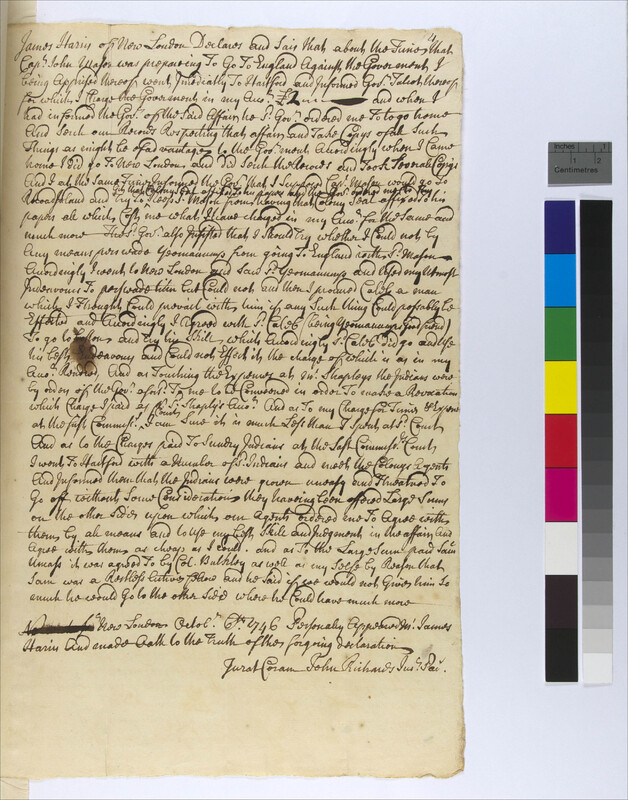 James Harris of New London Declares and Sais that about the Time that
Capt. John Mason was prepareing To Go To England Against the Goverment, I
being Apprised thereof went Imediatly To Hartford and Informed Govr. Talcott thereof
for which I Charge the Goverment in my Acco. £2 and when I
had informed the Govr. of the Said Affair he Sd. Govr. ordered me To go home
And Serch our Records Respecting that affair and Take Copys of all Such
Things as might be of advantage to the Goverment Accordingly when I Came
home I Did go To New London and Did Serch the Records and Took Severale Copys
And I at the Same Time Informed the Govr. that I Suposed Capt. Mason would go To
Rhoad Island and Try To Geet that Colony Seal affixed to his papers and the Govr. orderd me to go
and Try To Keep Sd. Mason from haveing that Colony Seal affixed to his
papers all which Cost me what I have charged in my Acco. for the Same and
much more The Sd. Govr. also Insisted that I Should Try whether I Could not by
Any means perswade Yeomanum from going To England with Sd. Mason
Accordingly I went to New London and Saw Sd. Yeomanum and Used my Utmost
Indeavours To perswade him but Could not and then I procured Caleb a man
which I Thought Could prevail with him if any Such thing Could possably be
Effected and Accordingly I Agreed with Sd. Caleb (being Yeomanums good friend)
To go to and try his Skill which Accordingly Sd. Caleb Did go and Use
his best Indeavours and Could not Effect it, the charge of which is as in my
Acco. Rendred. And as Touching the Expenses at Mr. Shapleys the Indians were
by orders of the Govr. aforsd. To me to be Convened in order To make a Revocation
which Charge I paid as pr. Shaply's Acco. And as To my Charge for Times & Expens
at the Last Commiss. Court I am Sure it is much Less than I Spent at Sd. Court
And as to the Charges paid To Sundry Indians at the Last Commiss. Court
I went To Hartford with a Number of Sd. Indians and meet the Colonys Agents
And Informed them that the Indians were grown uneasy and Threatned To
Go off without Some Consideration they haveing been offered Large Sums
on the other Side upon which our Agents ordered me To Agree with
them by all means and to Use my best Skill and Judgment in the affair, and
Agree with them as cheap as I Could. and as To the Large Sum paid Sam
Uncass it was agreed To by Col. Bulkley as well as my Selfe by Reason that
Sam was a Restless Active fellow and he said if we would not Give him So
much he would Go to the other Side where he Could have much more
New London Octobr. 6th. 1746 Personaly Appeared Mr. James
Harris And made Oath to the Truth of the forgoing declaration
Jurat Coram John Richards Jus. Pac.